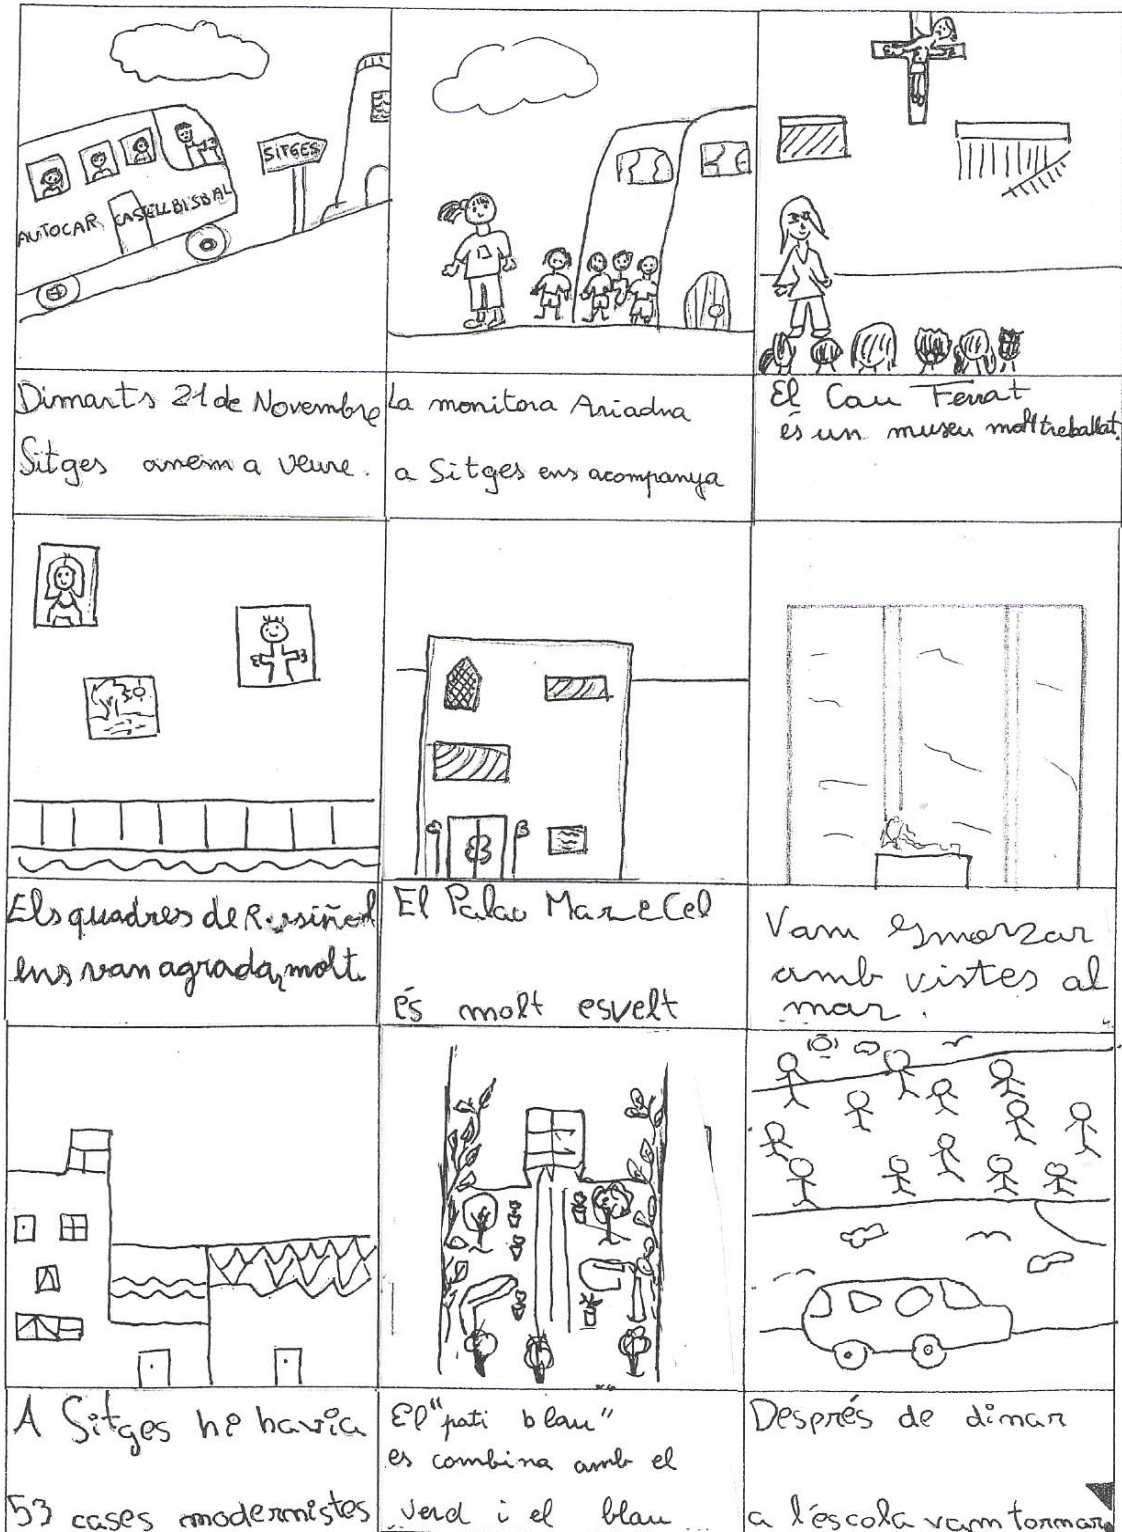 SITGES
AUTOCAR CASTELLBISBAL
Dimarts 21 de Novembre
Sitges anem a veure.
La monitora Ariadna
a Sitges ens acompanya
El Cau Ferrat
és un museu molt treballat.
Els quadres de Rusiñol
ens van agradar molt.
El Palau Mar i Cel
és molt esvelt
Vam esmorzar
amb vistes al
mar.
A Sitges hi havia
53 cases modernistes
El "pati blau"
es combina amb el
verd i el blau
Després de dinar
a l'éscola vam tornar.